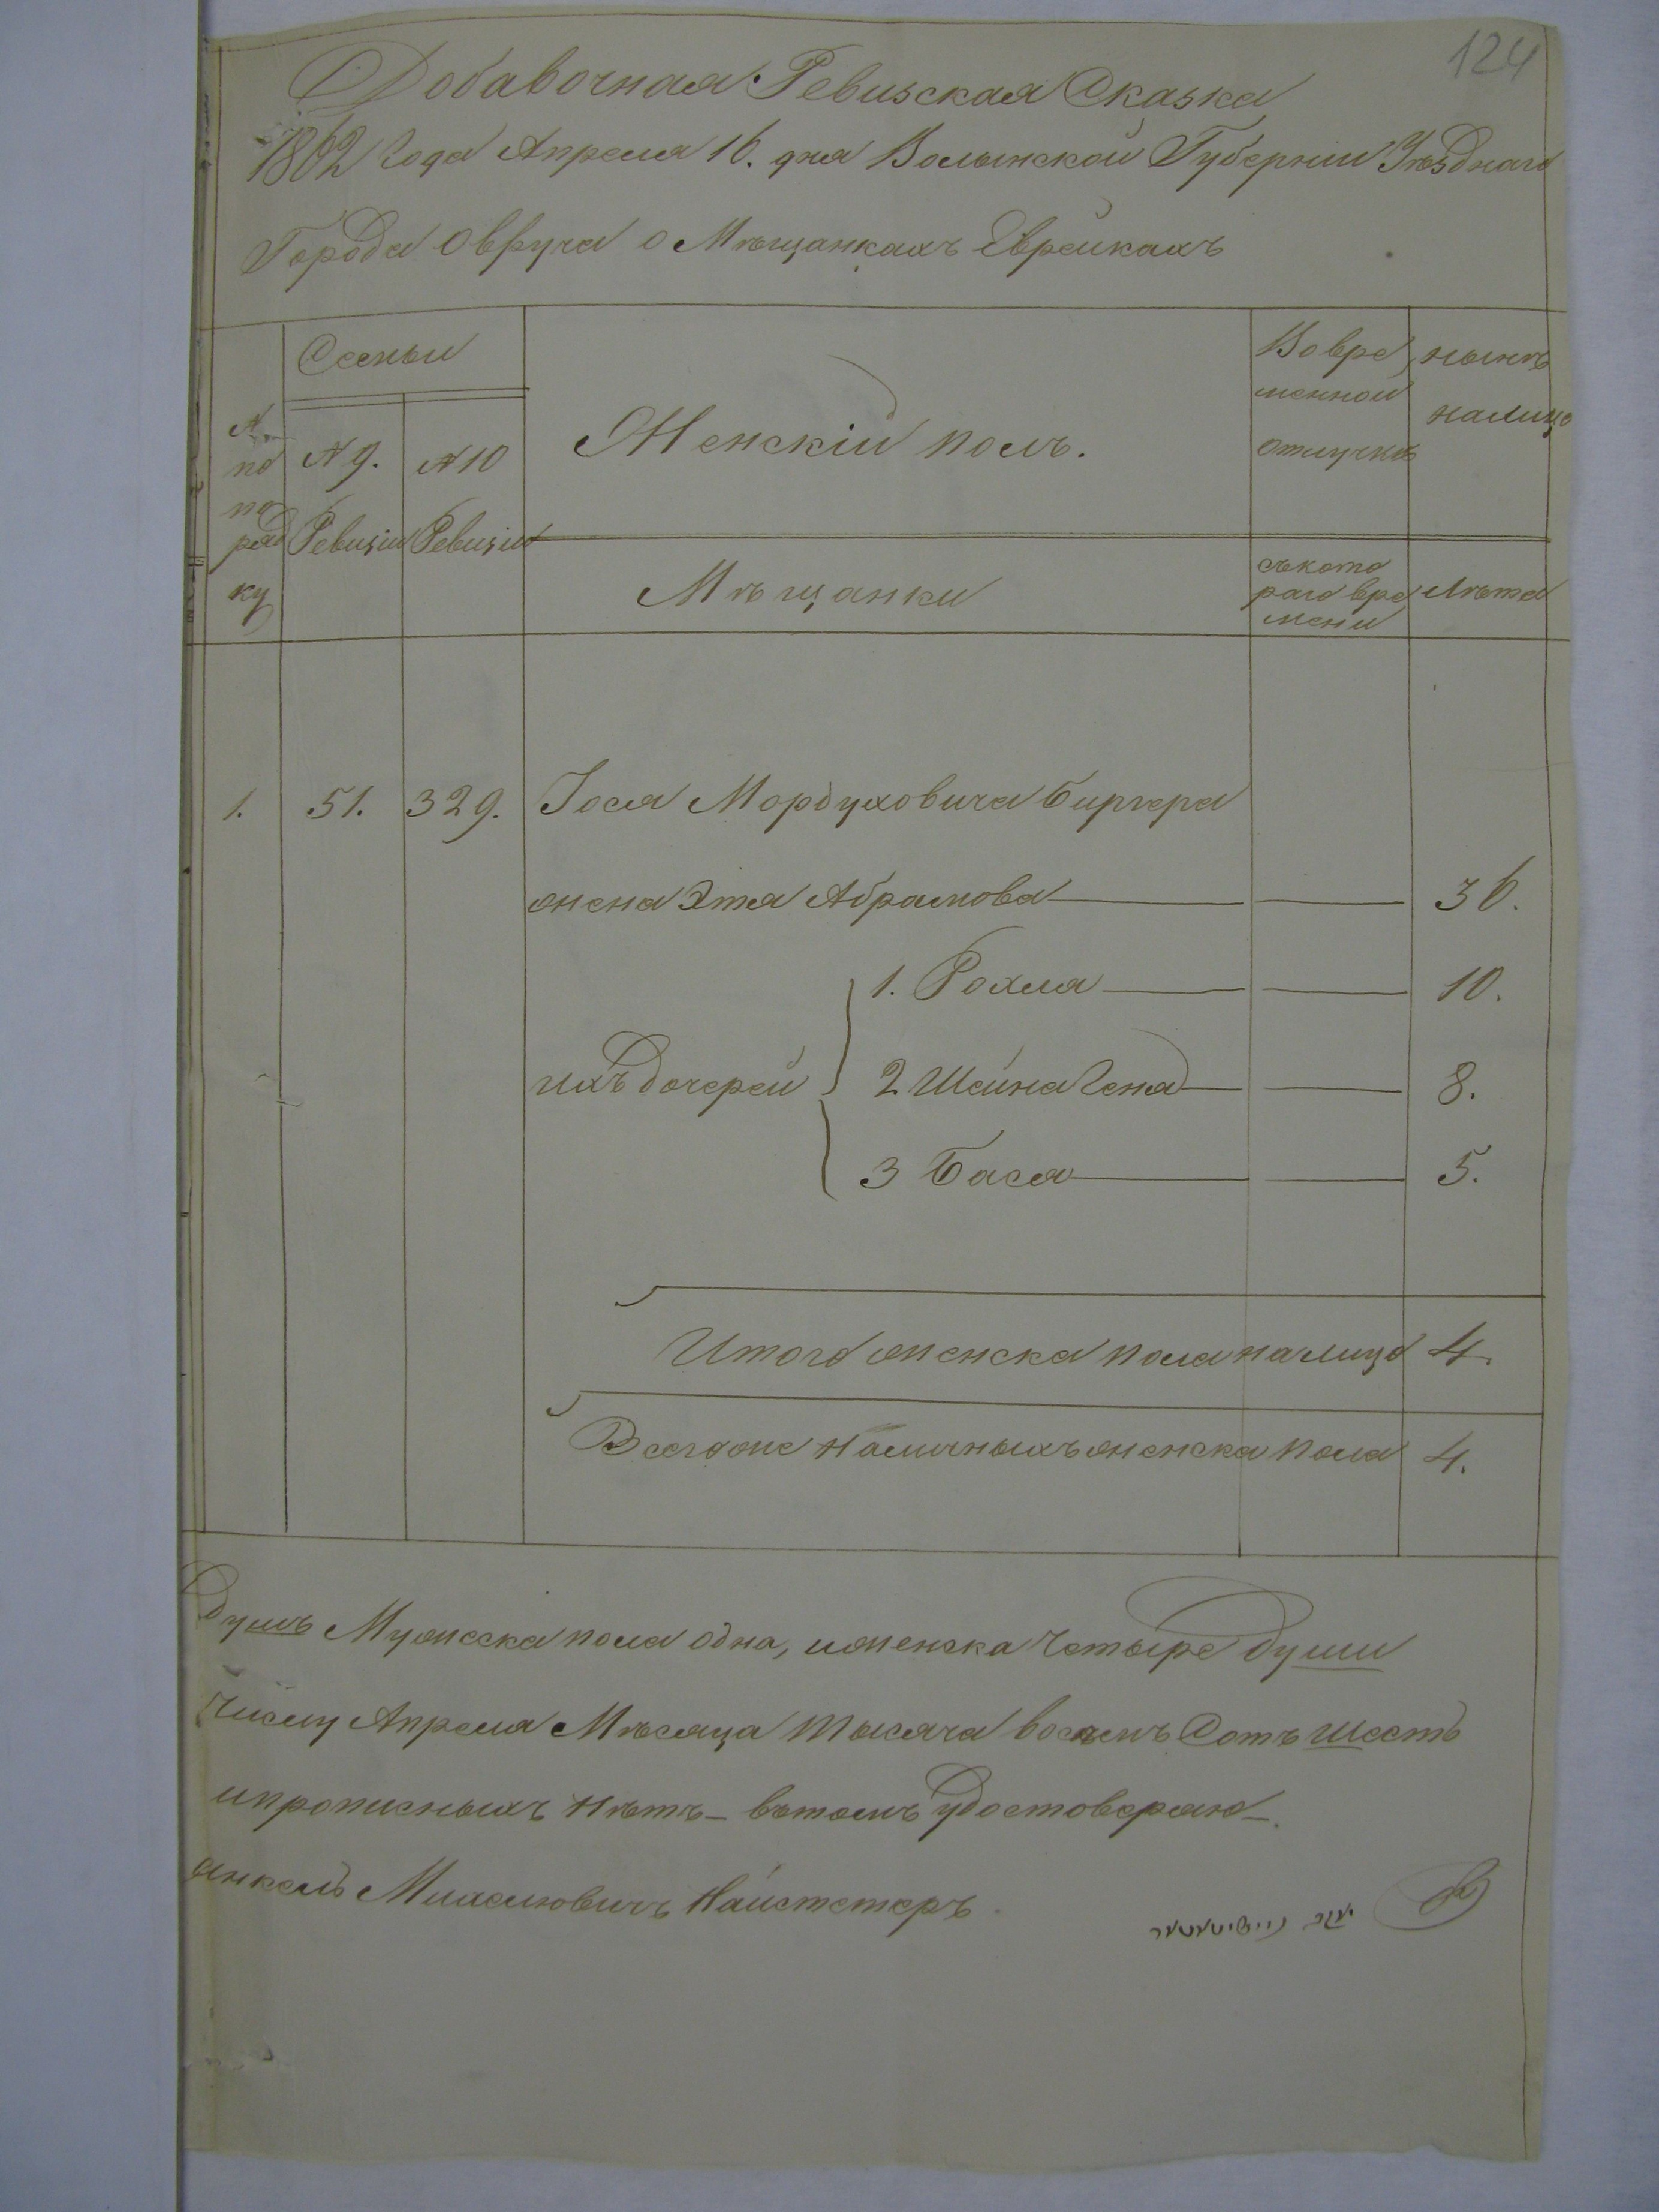 124
Добавочная Ревизская Сказка
1862 Года Апреля 16. дня Волынской Губернии Уѣзднаго
Города Овруча о Мѣщанкахъ Еврейкахъ
№ по порядку
Семьи
№ 9. Ревизіи
№ 10 Ревизіи
Женскій полъ.
Во временной отлучкѣ
нынѣ налицо
Мѣщанки
съ котораго времени
Лѣта
1. 51. 329. Іося Мордуховича Биргера
жена Эта Абрамова 36.
1. Рохля 10.
ихъ дочерей 2 Шейна Гена 8.
3 Бася 5.
Итого женска пола налицо 4.
Всего же наличныхъ женска пола 4.
душъ Мужеска пола одна, и женска четыре души
числу Апреля Мѣсяца тысяча восемь Сотъ шесть
и прописныхъ нѣтъ – въ томъ удостоверяю –
Янкель Мошковичъ Найстетеръ
יעקב ניישטעטער